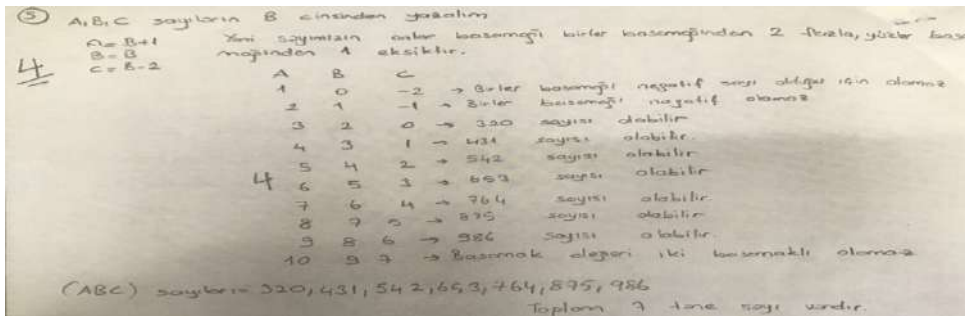 5 A,B,C sayıların B cinsinden yazalım
A = B+1
B = B
C = B-2
Yani sayımızın onlar basamağı birler basamağından 2 fazla, yüzler bas
mağından 1 eksiktir.
4
A B C
1 0 -2 → Birler basamağı negatif sayı olduğu için olamaz
2 1 -1 → Birler basamağı negatif olamaz
3 2 0 → 320 sayısı olabilir
4 3 1 → 431 sayısı olabilir.
5 4 2 → 542 sayısı olabilir
4
6 5 3 → 653 sayısı olabilir
7 6 4 → 764 sayısı olabilir
8 7 5 → 875 sayısı olabilir
9 8 6 → 986 sayısı olabilir.
10 9 7 → Basamak değeri iki basamaklı olamaz
(ABC) sayıları = 320, 431, 542, 653, 764, 875, 986
Toplam 7 tane sayı vardır.